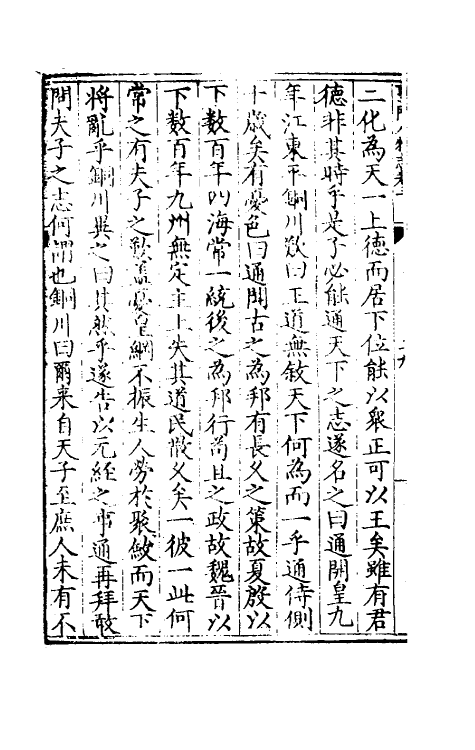 二化為天一上德而居下位能以衆正可以王矣雖有君
德非其時乎是子必能通天下之志遂名之曰通開皇九
年江東平銅川歎曰王道無敘天下何為而一乎通侍側
十歲矣有憂色曰通聞古之為邦有長久之策故夏殷以
下數百年四海常一統後之為邦行苟且之政故魏晉以
下數百年九州無定主上失其道民散久矣一彼一此何
常之有夫子之歎蓋憂皇綱不振生人勞於聚斂而天下
將亂乎銅川異之曰其然乎遂告以元經之事通再拜敢
問夫子之志何謂也銅川曰爾来自天子至庶人未有不